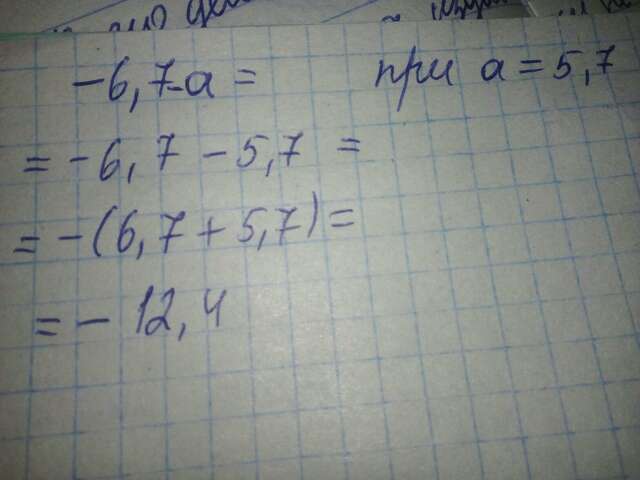 -6,7-a = при a = 5,7
= -6,7 - 5,7 =
= -(6,7 + 5,7) =
= - 12,4